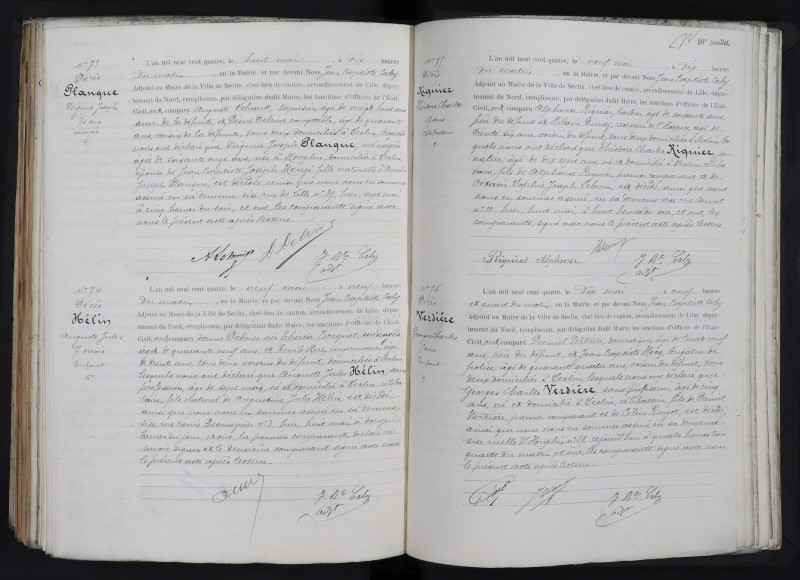 N° 73
Décès
Planque
Virginie Joseph
71 ans
mariée
L'an mil neuf cent quatre, le huit mai à dix heures
Du matin, en la Mairie, et par devant Nous Jean Baptiste Caby
Adjoint au Maire de la Ville de Seclin, chef-lieu de canton, arrondissement de Lille, département
du Nord, remplissant, par délégation dudit Maire, les fonctions d'Officier de l'État-
Civil, ont comparu Auguste, âgé de vingt huit ans
ami de la défunte, et comptable, âgé de quarante
ans, voisin de la défunte, tous deux domiciliés à Seclin, lesquels
nous ont déclaré que Virginie Joseph Planque, ménagère
âgée de soixante onze ans, née à Houplin, domiciliée à Seclin
épouse de Jean Baptiste Joseph, fille naturelle d'
Joseph Planque, est décédée, ainsi que nous nous en sommes
assuré en sa demeure sise rue de Lille n° 39, hier, sept mai
à cinq heures du soir, et ont, les comparants signé avec
nous le présent acte après lecture.
J. Bte Caby
adjt
N° 74
Décès
Hélin
Auguste Jules
7 mois
Enfant
L'an mil neuf cent quatre, le neuf mai à neuf heures
Du matin, en la Mairie, et par devant Nous Jean Baptiste Caby
Adjoint au Maire de la Ville de Seclin, chef-lieu de canton, arrondissement de Lille, département
du Nord, remplissant, par délégation dudit Maire, les fonctions d'Officier de l'État-
Civil, ont comparu
âgée de quarante neuf ans, et, âgé
de trente ans, tous deux voisins du défunt, domiciliés à Seclin
lesquels nous ont déclaré que Auguste Jules Hélin, sans
profession, âgé de sept mois, né et domicilié à Seclin, céliba-
taire, fils naturel de Augustine Julie Hélin, est décédé,
ainsi que nous nous en sommes assuré en sa demeure
sise rue Desmazières n° 3, hier huit mai à douze
heures du jour, et ont, la première comparante déclaré ne
savoir signer et le deuxième comparant signé avec nous
le présent acte après lecture.
J. Bte Caby
adjt
20e feuillet.
N° 75
Décès
Riquier
17 ans
Célibataire
L'an mil neuf cent quatre, le neuf mai à dix heures
Du matin, en la Mairie, et par devant Nous Jean Baptiste Caby
Adjoint au Maire de la Ville de Seclin, chef-lieu de canton, arrondissement de Lille, dépar-
tement du Nord, remplissant, par délégation dudit Maire, les fonctions d'Officier de l'État-
Civil, ont comparu Alphonse Riquier, âgé de soixante ans
père du défunt et, âgé de
trente six ans voisin du défunt, tous deux domiciliés à Seclin, les-
quels nous ont déclaré que Charles Riquier, jour-
nalier, âgé de dix sept ans né et domicilié à Seclin, céliba-
taire, fils de Alphonse Riquier, premier comparant et de
Sophie Joseph, est décédé, ainsi que nous
nous en sommes assuré, en sa demeure sise rue Carnot
n° 10, hier, huit mai, à huit heures du soir, et ont, les
comparants, signé avec nous le présent acte après lecture.
Riquier Alphonse
J. Bte Caby
adjt
N° 76
Décès
Verdière
Georges Charles
5 ans
Enfant
L'an mil neuf cent quatre, le dix mai à neuf heures
et quart du matin, en la Mairie, et par devant Nous Jean Baptiste Caby
Adjoint au Maire de la Ville de Seclin, chef-lieu de canton, arrondissement de Lille, dépar-
tement du Nord, remplissant, par délégation dudit Maire, les fonctions d'Officier de l'État-
Civil, ont comparu Daniel Verdière, domestique, âgé de trente neuf
ans, père du défunt, et Jean Baptiste, brigadier de
police, âgé de quarante quatre ans, voisin du défunt, tous
deux domiciliés à Seclin, lesquels nous ont déclaré que
Georges Charles Verdière, sans profession, âgé de cinq
ans, né et domicilié à Seclin, célibataire, fils de Daniel
Verdière, premier comparant et de, est décédé,
ainsi que nous nous en sommes assuré en sa demeure
sise ruelle d'Houplin n° 28, cejourd'hui à quatre heures trois
quarts du matin et ont, les comparants signé avec nous
le présent acte après lecture.
J. Bte Caby
adjt